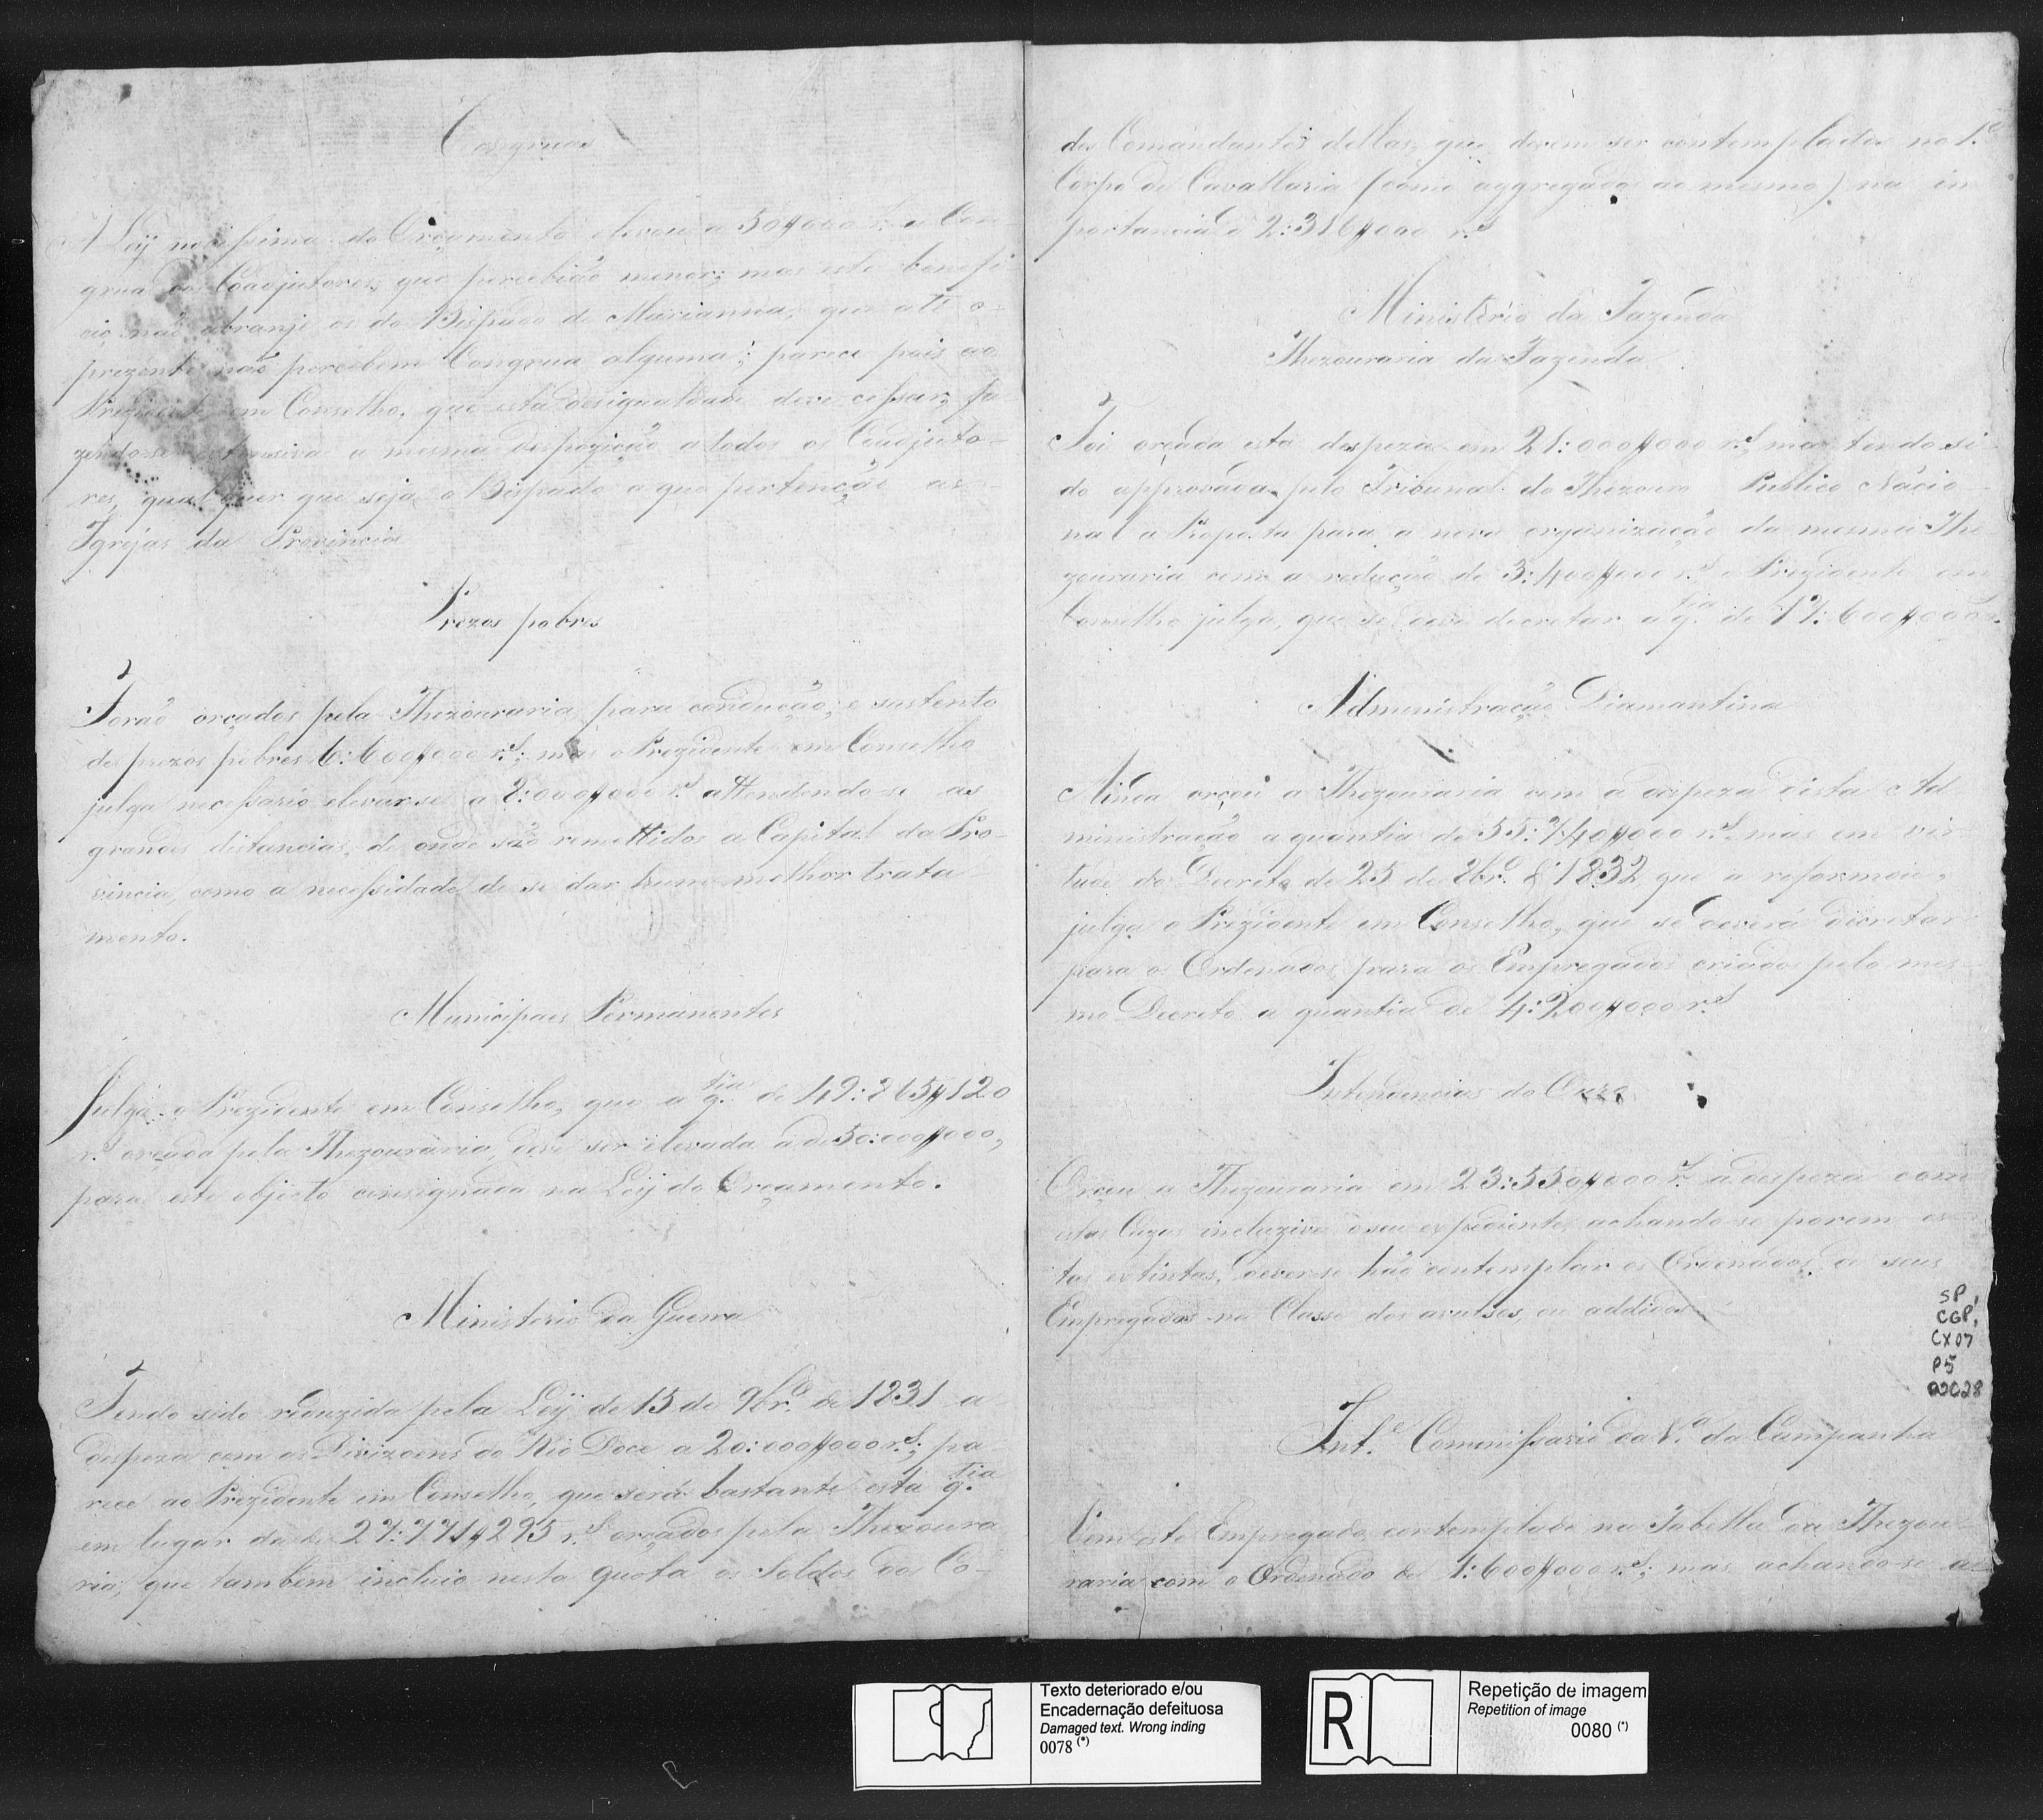 Congruas
A Ley novissima do Orçamento elevou a 50$000 rs a Con
grua dos Coadjutores, que percebião menor; mas este benefi
cio não abranje os do Bispado de Marianna, que até o
prezente não percebem Congrua alguma; parece pois ao
Prezidente em Conselho, que esta desigualdade deve cessar, fa
zendo-se extensiva a mesma dispozição a todos os Coadjuto-
res, qualquer que seja o Bispado a que pertenção as
Igrejas da Provincia
Prezos pobres
Forão orçados pela Thezouraria para condução, e sustento
de prezos pobres 6:600$000 rs; mas o Prezidente em Conselho
julga necessario elevar-se a 8:000$000 rs attendendo-se as
grandes distancias, de onde são remettidos a Capital da Pro-
vincia, como a necessidade de se dar hum melhor trata
mento.
Municipaes Permanentes
Julga o Prezidente em Conselho, que a q.tia de 49:865$120
rs orçada pela Thezouraria, deve ser elevada a de 50:000$000,
para este objecto consignada na Ley do Orçamento.
Ministerio da Guerra
Tendo sido reduzida pela Ley de 15 de 9br.o de 1831 a
despeza com as Divizoens do Rio Doce a 20:000$000 rs; pa
rece ao Prezidente em Conselho, que será bastante esta q.tia
em lugar da de 27:771$295 rs orçados pela Thezoura
ria, que tambem incluio nesta quota os Soldos dos Co-
dos Comandantes dellas, que devem ser contemplados no 1.o
Corpo de Cavallaria (como aggregados ao mesmo) na im
portancia d 2:316$000 rs
Ministerio da Fazenda
Thezouraria da Fazenda
Foi orçada esta despeza em 21:000$000 rs, mas tendo si
do approvada pelo Tribunal do Thezouro Publico Nacio
nal a Proposta para a nova organização da mesma The
zouraria com a redução de 3:400$000 rs o Prezidente em
Conselho julga, que se deve decretar a q.tia de 17:600$000 rs.
Administração Diamantina
Ainda orçou a Thezouraria com a despeza desta Ad
ministração a quantia de 55:740$000 rs, mas em vir
tude do Decreto de 25 de 8br.o d 1832, que a reformou,
julga o Prezidente em Conselho, que se deverá decretar
para os Ordenados para os Empregados criados pelo mes
mo Decreto a quantia de 4:200$000 rs
Intendencias do Ouro
Orçou a Thezouraria em 23:550$000 rs a despeza com
estas Cazas incluzive o seu expediente, achando-se porem es
tas extintas, dever-se hão contemplar os Ordenados de seus
Empregados na Classe dos avulsos, ou addidos
SP
CGP,
CX07
P5
Int.e Commissario da V.a da Campanha
Vem este Empregado contemplado na Tabella da Thezou
raria com o Ordenado de 1:600$000 rs; mas achando-se a
Texto deteriorado e/ou
Encadernação defeituosa
Damaged text. Wrong inding
0078 (*)
R
Repetição de imagem
Repetition of image
0080 (*)